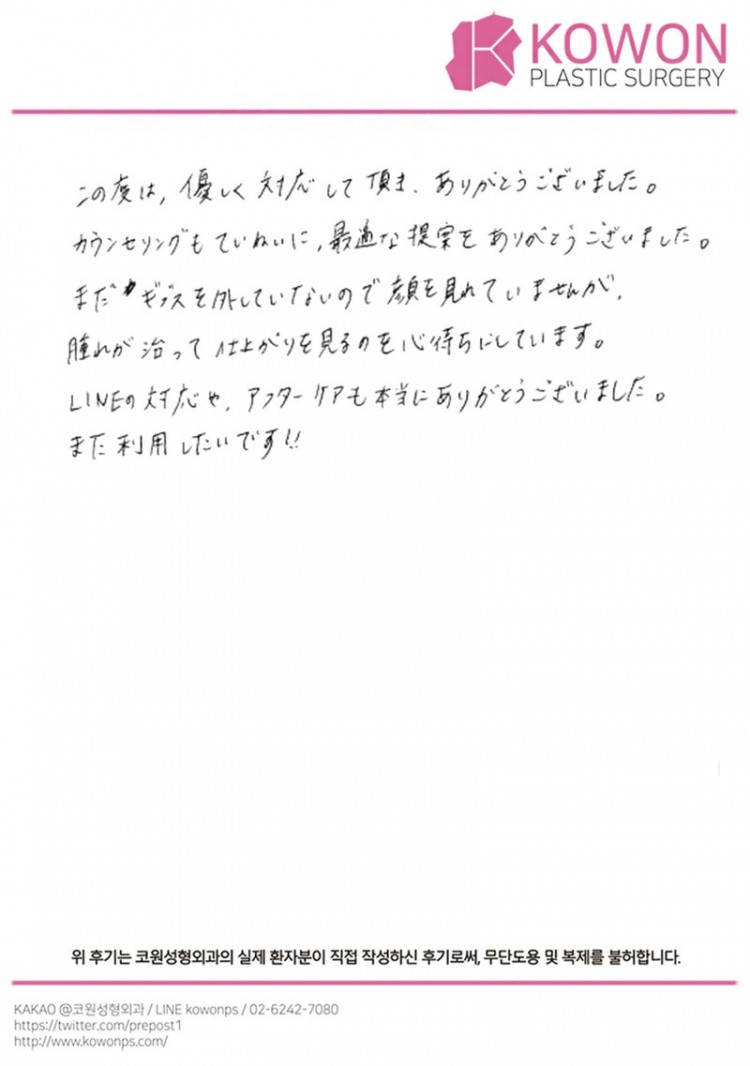 KOWON
PLASTIC SURGERY
この度は, 優しく対応して頂き、ありがとうございました。
カウンセリングもていねいに, 最適な提案をありがとうございました。
まだギプスを外していないので顔を見れていませんが,
腫れが治って仕上がりを見るのを心待ちにしています。
LINEの対応や、アフターケアも本当にありがとうございました。
また利用したいです!!
위 후기는 코원성형외과의 실제 환자분이 직접 작성하신 후기로써, 무단도용 및 복제를 불허합니다.
KAKAO @코원성형외과 / LINE kowonps / 02-6242-7080
https://twitter.com/prepost1
http://www.kowonps.com/